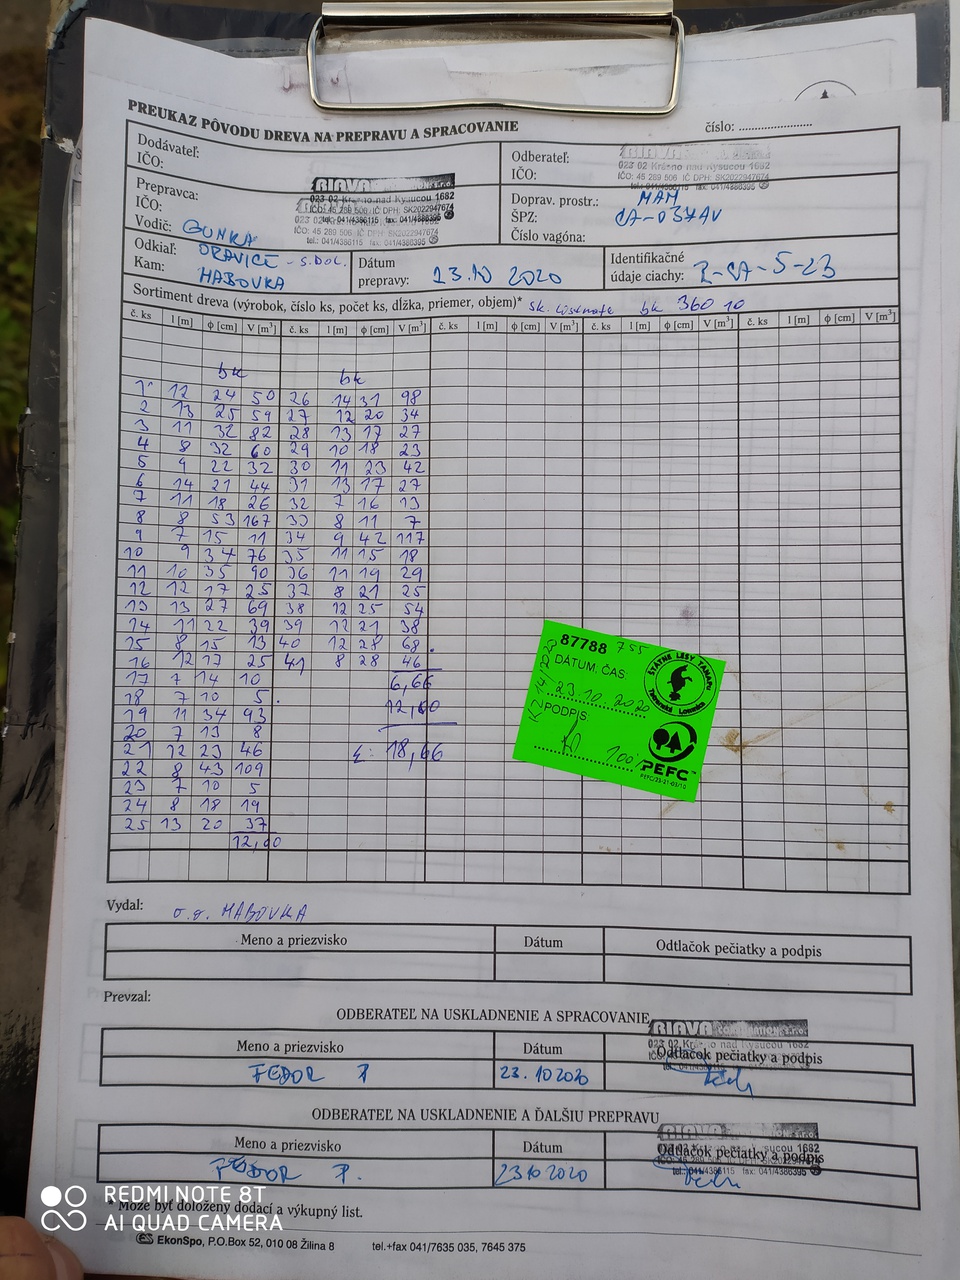 PREUKAZ PÔVODU DREVA NA PREPRAVU A SPRACOVANIE
číslo: ........................
Dodávateľ:
IČO:
Odberateľ:
IČO:
023 02 Krásno nad Kysucou 1682
IČO: 45 289 506 IČ DPH: SK2022947674
tel.: 041/4386115 fax: 041/4386395
Prepravca:
IČO:
Vodič: GONKA
RIAVA
023 02 Krásno nad Kysucou 1682
IČO: 45 289 506 IČ DPH: SK2022947674
tel.: 041/4386115 fax: 041/4386395
Doprav. prostr.: MAN
ŠPZ: CA-037AV
Číslo vagóna:
Odkiaľ: ORAVICE - S.DOL.
Kam: HABOVKA
Dátum
prepravy: 23.10 2020
Identifikačné
údaje ciachy: Z-CA-5-23
Sortiment dreva (výrobok, číslo ks, počet ks, dĺžka, priemer, objem)* bk 360 10
č. ks l [m] ϕ [cm] V [m³] č. ks l [m] ϕ [cm] V [m³] č. ks l [m] ϕ [cm] V [m³] č. ks l [m] ϕ [cm] V [m³] č. ks l [m] ϕ [cm] V [m³]
bk bk
1 12 24 50 26 14 31 98
2 13 25 59 27 12 20 34
3 11 32 82 28 13 17 27
4 8 32 60 29 10 18 23
5 9 22 32 30 11 23 42
6 14 21 44 31 13 17 27
7 11 18 26 32 7 16 13
8 8 53 167 33 8 11 7
9 7 15 11 34 9 42 117
10 9 34 76 35 11 15 18
11 10 35 90 36 11 19 29
12 12 17 25 37 8 21 25
13 13 27 69 38 12 25 54
14 11 22 39 39 12 21 38
15 8 15 13 40 12 28 68
16 12 17 25 41 8 28 46
17 7 14 10 6,66
18 7 10 5 12,00
19 11 34 93
20 7 13 8
21 12 23 46 Σ: 18,66
22 8 43 109
23 7 10 5
24 8 18 19
25 13 20 37
12,00
87788 755
DÁTUM, ČAS:
23.10.2020
PODPIS:
100%
ŠTÁTNE LESY TANAPu
Tatranská Lomnica
PEFC
PEFC/23-21-03/10
Vydal: o.o. HABOVKA
Meno a priezvisko Dátum Odtlačok pečiatky a podpis
Prevzal:
ODBERATEĽ NA USKLADNENIE A SPRACOVANIE
RIAVA
023 02 Krásno nad Kysucou 1682
Meno a priezvisko Dátum Odtlačok pečiatky a podpis
FEDOR P 23.10 2020
ODBERATEĽ NA USKLADNENIE A ĎALŠIU PREPRAVU
RIAVA
Meno a priezvisko Dátum Odtlačok pečiatky a podpis
FEDOR P. 23 10 2020
* Môže byť doložený dodací a výkupný list.
REDMI NOTE 8T
AI QUAD CAMERA
EkonSpo, P.O.Box 52, 010 08 Žilina 8 tel.+fax 041/7635 035, 7645 375